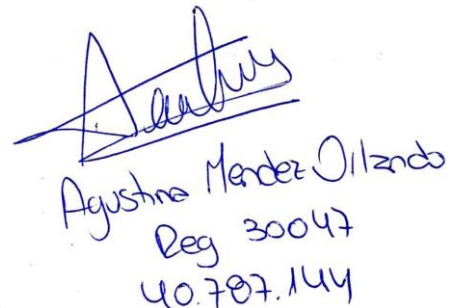 Agustina Mendez Orlando
Reg 30047
40.787.144